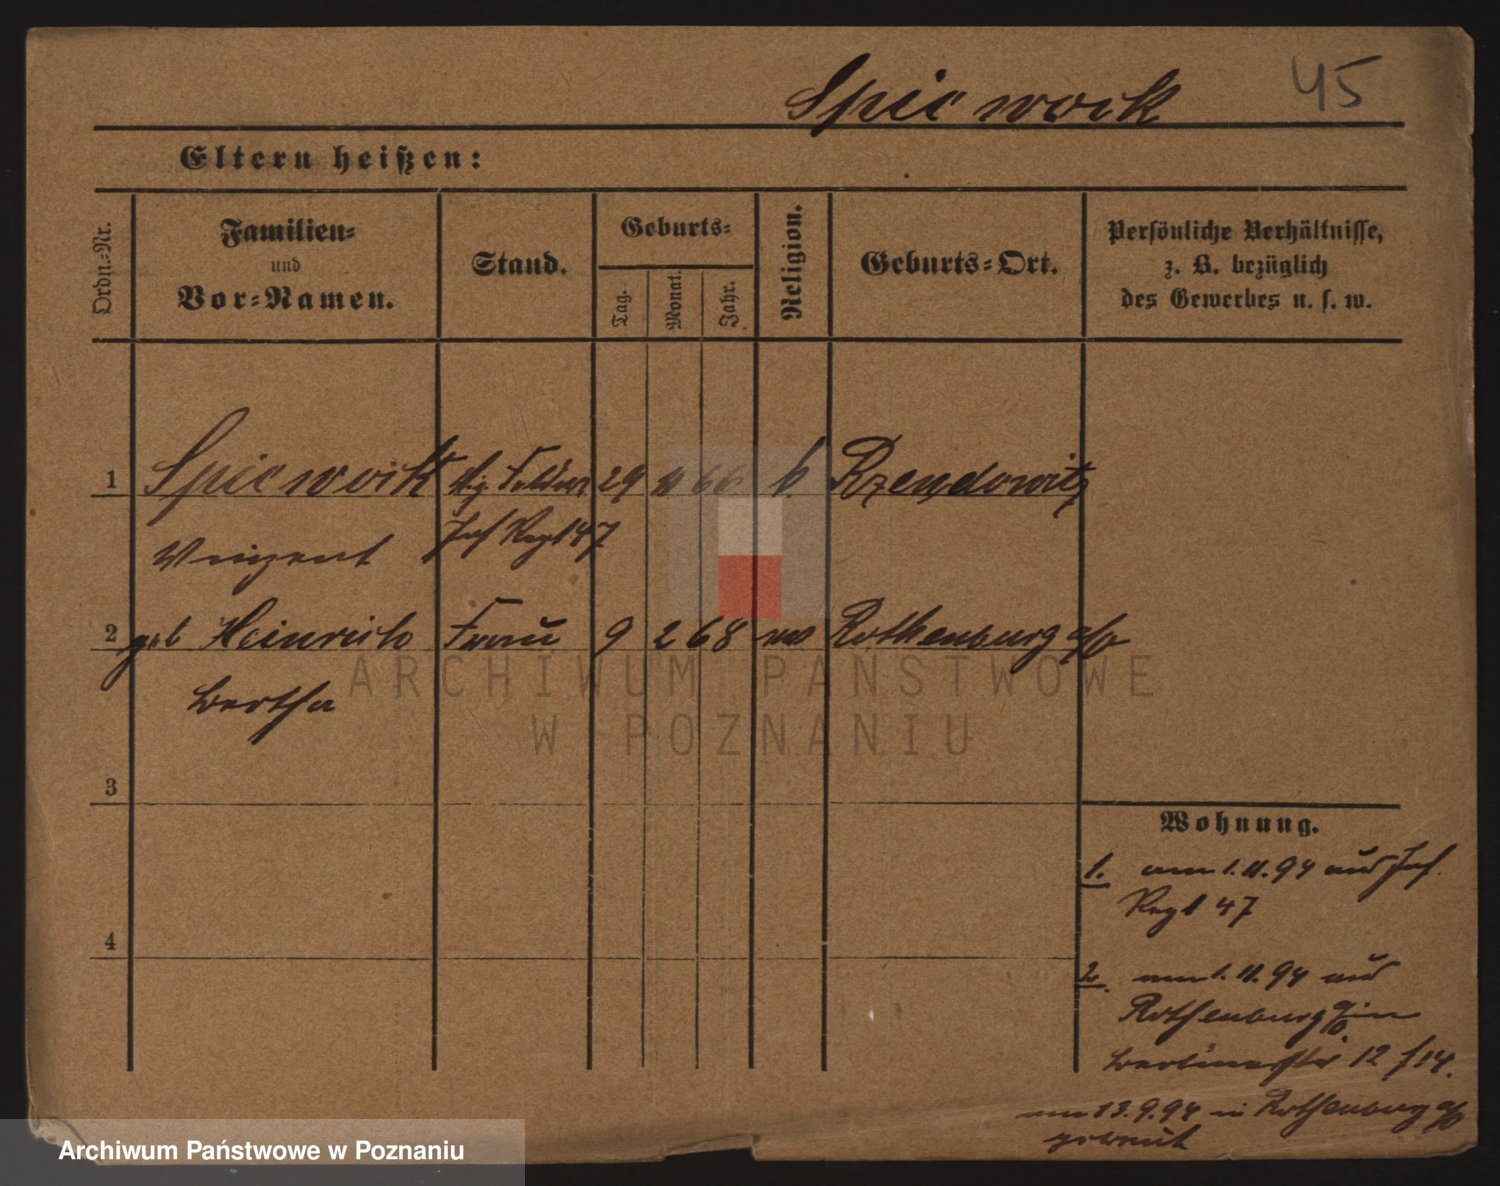 Spiewoik 45
Eltern heißen:
Ordn.-Nr.
Familien-
und
Vor-Namen.
Stand.
Geburts-
Tag.
Monat.
Jahr.
Religion.
Geburts-Ort.
Persönliche Verhältnisse,
z. B. bezüglich
des Gewerbes u. s. w.
1 Spiewoik 29 11 66 k. Rzendowitz
Vinzent Inf Regt 47
2 geb Heinrich Frau 9 2 68 ev Rothenburg a/O
Bertha
3
4
Wohnung.
1. am 1.11.94 aus Inf.
Regt 47
2. am 1.11.94 aus
Rothenburg a/O in
Berlinerstr 12 f 14.
am 13.9.94 in Rothenburg a/O
getraut
ARCHIWUM PAŃSTWOWE
W POZNANIU
Archiwum Państwowe w Poznaniu